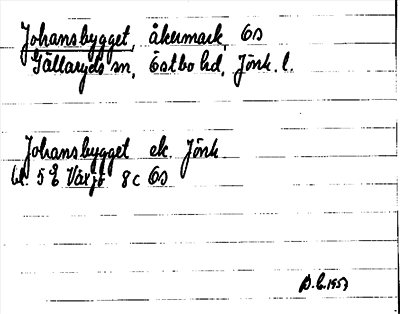 Johansbygget, åkermark, Ös
Gällaryds sn, Östbo hd, Jönk. l.
Johansbygget ek. Jönk
bl. 5 E Växjö 8c Ös
1957